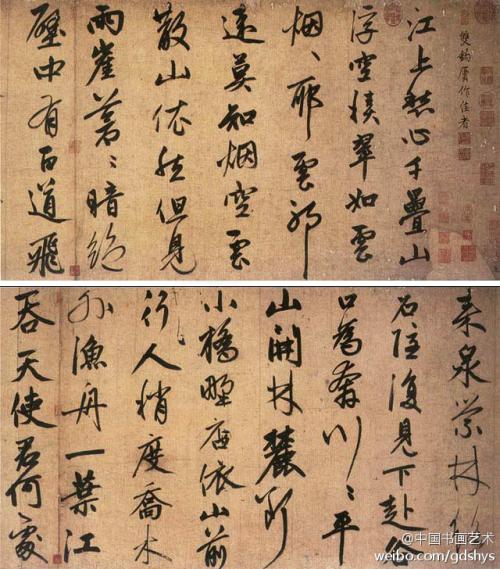 雙鈎贗作佳者
江上愁心千疊山
浮空積翠如雲
烟〻耶雲邪
遠莫知烟空雲
散山依然但見
兩崖蒼〻暗絶
壑中有百道飛
来泉縈林絡
石隠復見下赴谷
口為奔川〻平
山開林麓断
小橋野店依山前
行人稍度喬木
外漁舟一葉江
吞天使君何處
@中国书画艺术
weibo.com/gdshys